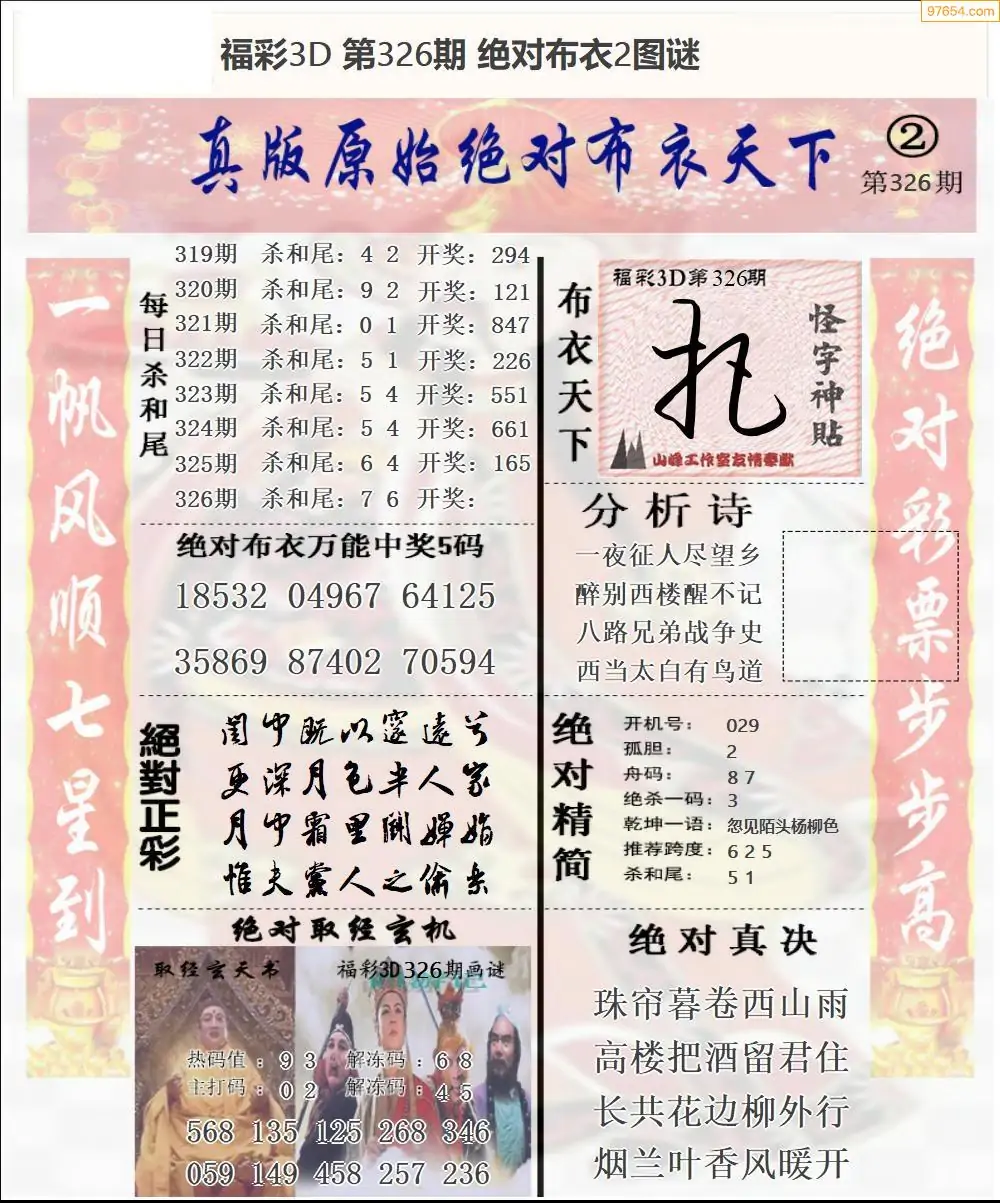 97654.com
福彩3D 第326期 绝对布衣2图谜
真版原始绝对布衣天下
②
第326期
一帆风顺七星到
每日杀和尾
319期 杀和尾：4 2 开奖：294
320期 杀和尾：9 2 开奖：121
321期 杀和尾：0 1 开奖：847
322期 杀和尾：5 1 开奖：226
323期 杀和尾：5 4 开奖：551
324期 杀和尾：5 4 开奖：661
325期 杀和尾：6 4 开奖：165
326期 杀和尾：7 6 开奖：
绝对布衣万能中奖5码
18532 04967 64125
35869 87402 70594
絕對正彩
闺中既以邃远兮
更深月色半人家
月中霜里斗婵娟
惟夫党人之偷乐
绝对取经玄机
取经玄天书
福彩3D326期画谜
热码值：9 3 解冻码：6 8
主打码：0 2 解冻码：4 5
568 135 125 268 346
059 149 458 257 236
布衣天下
福彩3D第326期
怪字神貼
山峰工作室友情奉献
分析诗
一夜征人尽望乡
醉别西楼醒不记
八路兄弟战争史
西当太白有鸟道
绝对精简
开机号：029
孤胆：2
舟码：8 7
绝杀一码：3
乾坤一语：忽见陌头杨柳色
推荐跨度：6 2 5
杀和尾：5 1
绝对真决
珠帘暮卷西山雨
高楼把酒留君住
长共花边柳外行
烟兰叶香风暖开
绝对彩票步步高